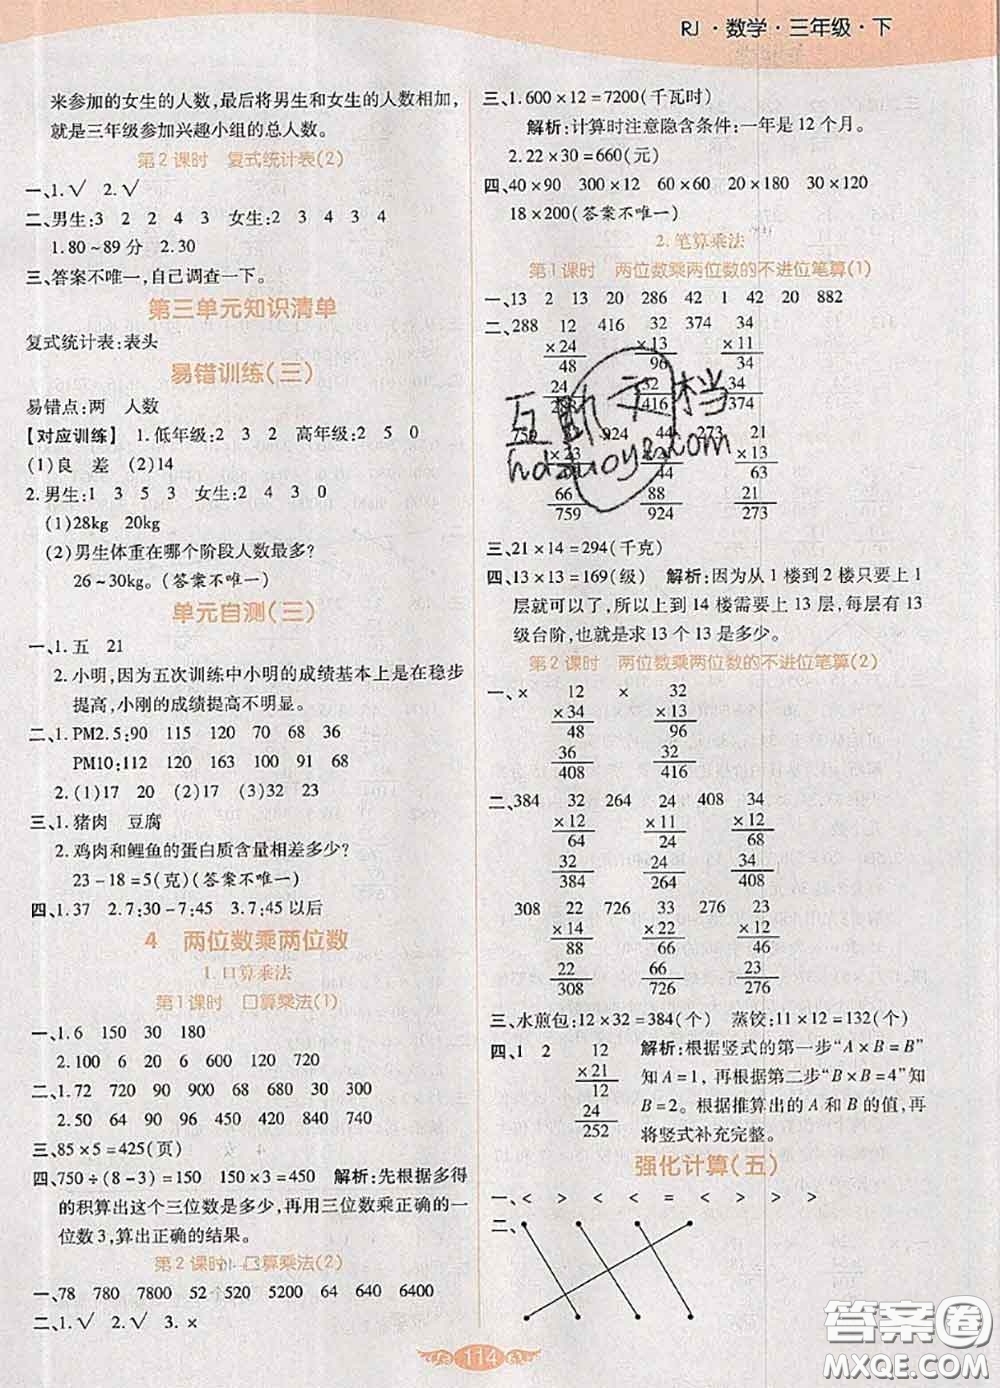 RJ·数学·三年级·下
来参加的女生的人数,最后将男生和女生的人数相加,
就是三年级参加兴趣小组的总人数。
第2课时 复式统计表(2)
一、1.√ 2.√
二、男生:3 2 2 4 3 女生:2 3 4 3 4
1.80~89分 2.30
三、答案不唯一,自己调查一下。
第三单元知识清单
复式统计表:表头
易错训练(三)
易错点:两 人数
【对应训练】 1.低年级:2 3 2 高年级:2 5 0
(1)良 差 (2)14
2.男生:1 3 5 3 女生:2 4 3 0
(1)28kg 20kg
(2)男生体重在哪个阶段人数最多?
26~30kg。(答案不唯一)
单元自测(三)
一、1.五 21
2.小明,因为五次训练中小明的成绩基本上是在稳步
提高,小刚的成绩提高不明显。
二、1.PM2.5:90 115 120 70 68 36
PM10:112 120 163 100 91 68
2.(1)17 20 (2)17 (3)32 23
三、1.猪肉 豆腐
2.鸡肉和鲤鱼的蛋白质含量相差多少?
23-18=5(克)(答案不唯一)
四、1.37 2.7:30-7:45 3.7:45以后
4 两位数乘两位数
1.口算乘法
第1课时 口算乘法(1)
一、1.6 150 30 180
2.100 6 20 6 600 120 720
二、1.72 720 90 900 68 680 92 920
2.50 64 90 480 450 420 840 740
三、85×5=425(页)
四、750÷(8-3)=150 150×3=450 解析:先根据多得
的积算出这个三位数是多少,再用三位数乘正确的一
位数3,算出正确的结果。
第2课时 口算乘法(2)
一、78 780 7800 52 520 5200 64 640 6400
二、1.√ 2.√ 3.×
三、1.600×12=7200(千瓦时)
解析:计算时注意隐含条件:一年是12个月。
2.22×30=660(元)
四、40×90 300×12 60×60 20×180 30×120
18×200(答案不唯一)
2.笔算乘法
第1课时 两位数乘两位数的不进位笔算(1)
一、13 2 13 20 286 42 1 42 20 882
二、288 12 416 32 374 34
×24 ×13 ×11
48 96 34
24 32 34
288 416 374
759 924 44 273 21
×23 ×13
44 63
66 88 21
759 924 273
三、21×14=294(千克)
四、13×13=169(级) 解析:因为从1楼到2楼只要上1
层就可以了,所以上到14楼需要上13层,每层有13
级台阶,也就是求13个13是多少。
第2课时 两位数乘两位数的不进位笔算(2)
一、× 12 × 32
×34 ×13
48 96
36 32
408 416
二、384 32 264 24 408 34
×12 ×11 ×12
64 24 68
32 24 34
384 264 408
308 22 726 33 276 23
×14 ×22 ×12
88 66 46
22 66 23
308 726 276
三、水煎包:12×32=384(个) 蒸饺:11×12=132(个)
四、1 2 12 解析:根据竖式的第一步“A×B=B”
×21 知A=1,再根据第二步“B×B=4”可知
12 B=2。根据推算出的A和B的值,再
24 将竖式补充完整。
252
强化计算(五)
一、< > < < = < > > >
二、
114
互助文档
hdzuoye.com
答案圈
MXQE.COM